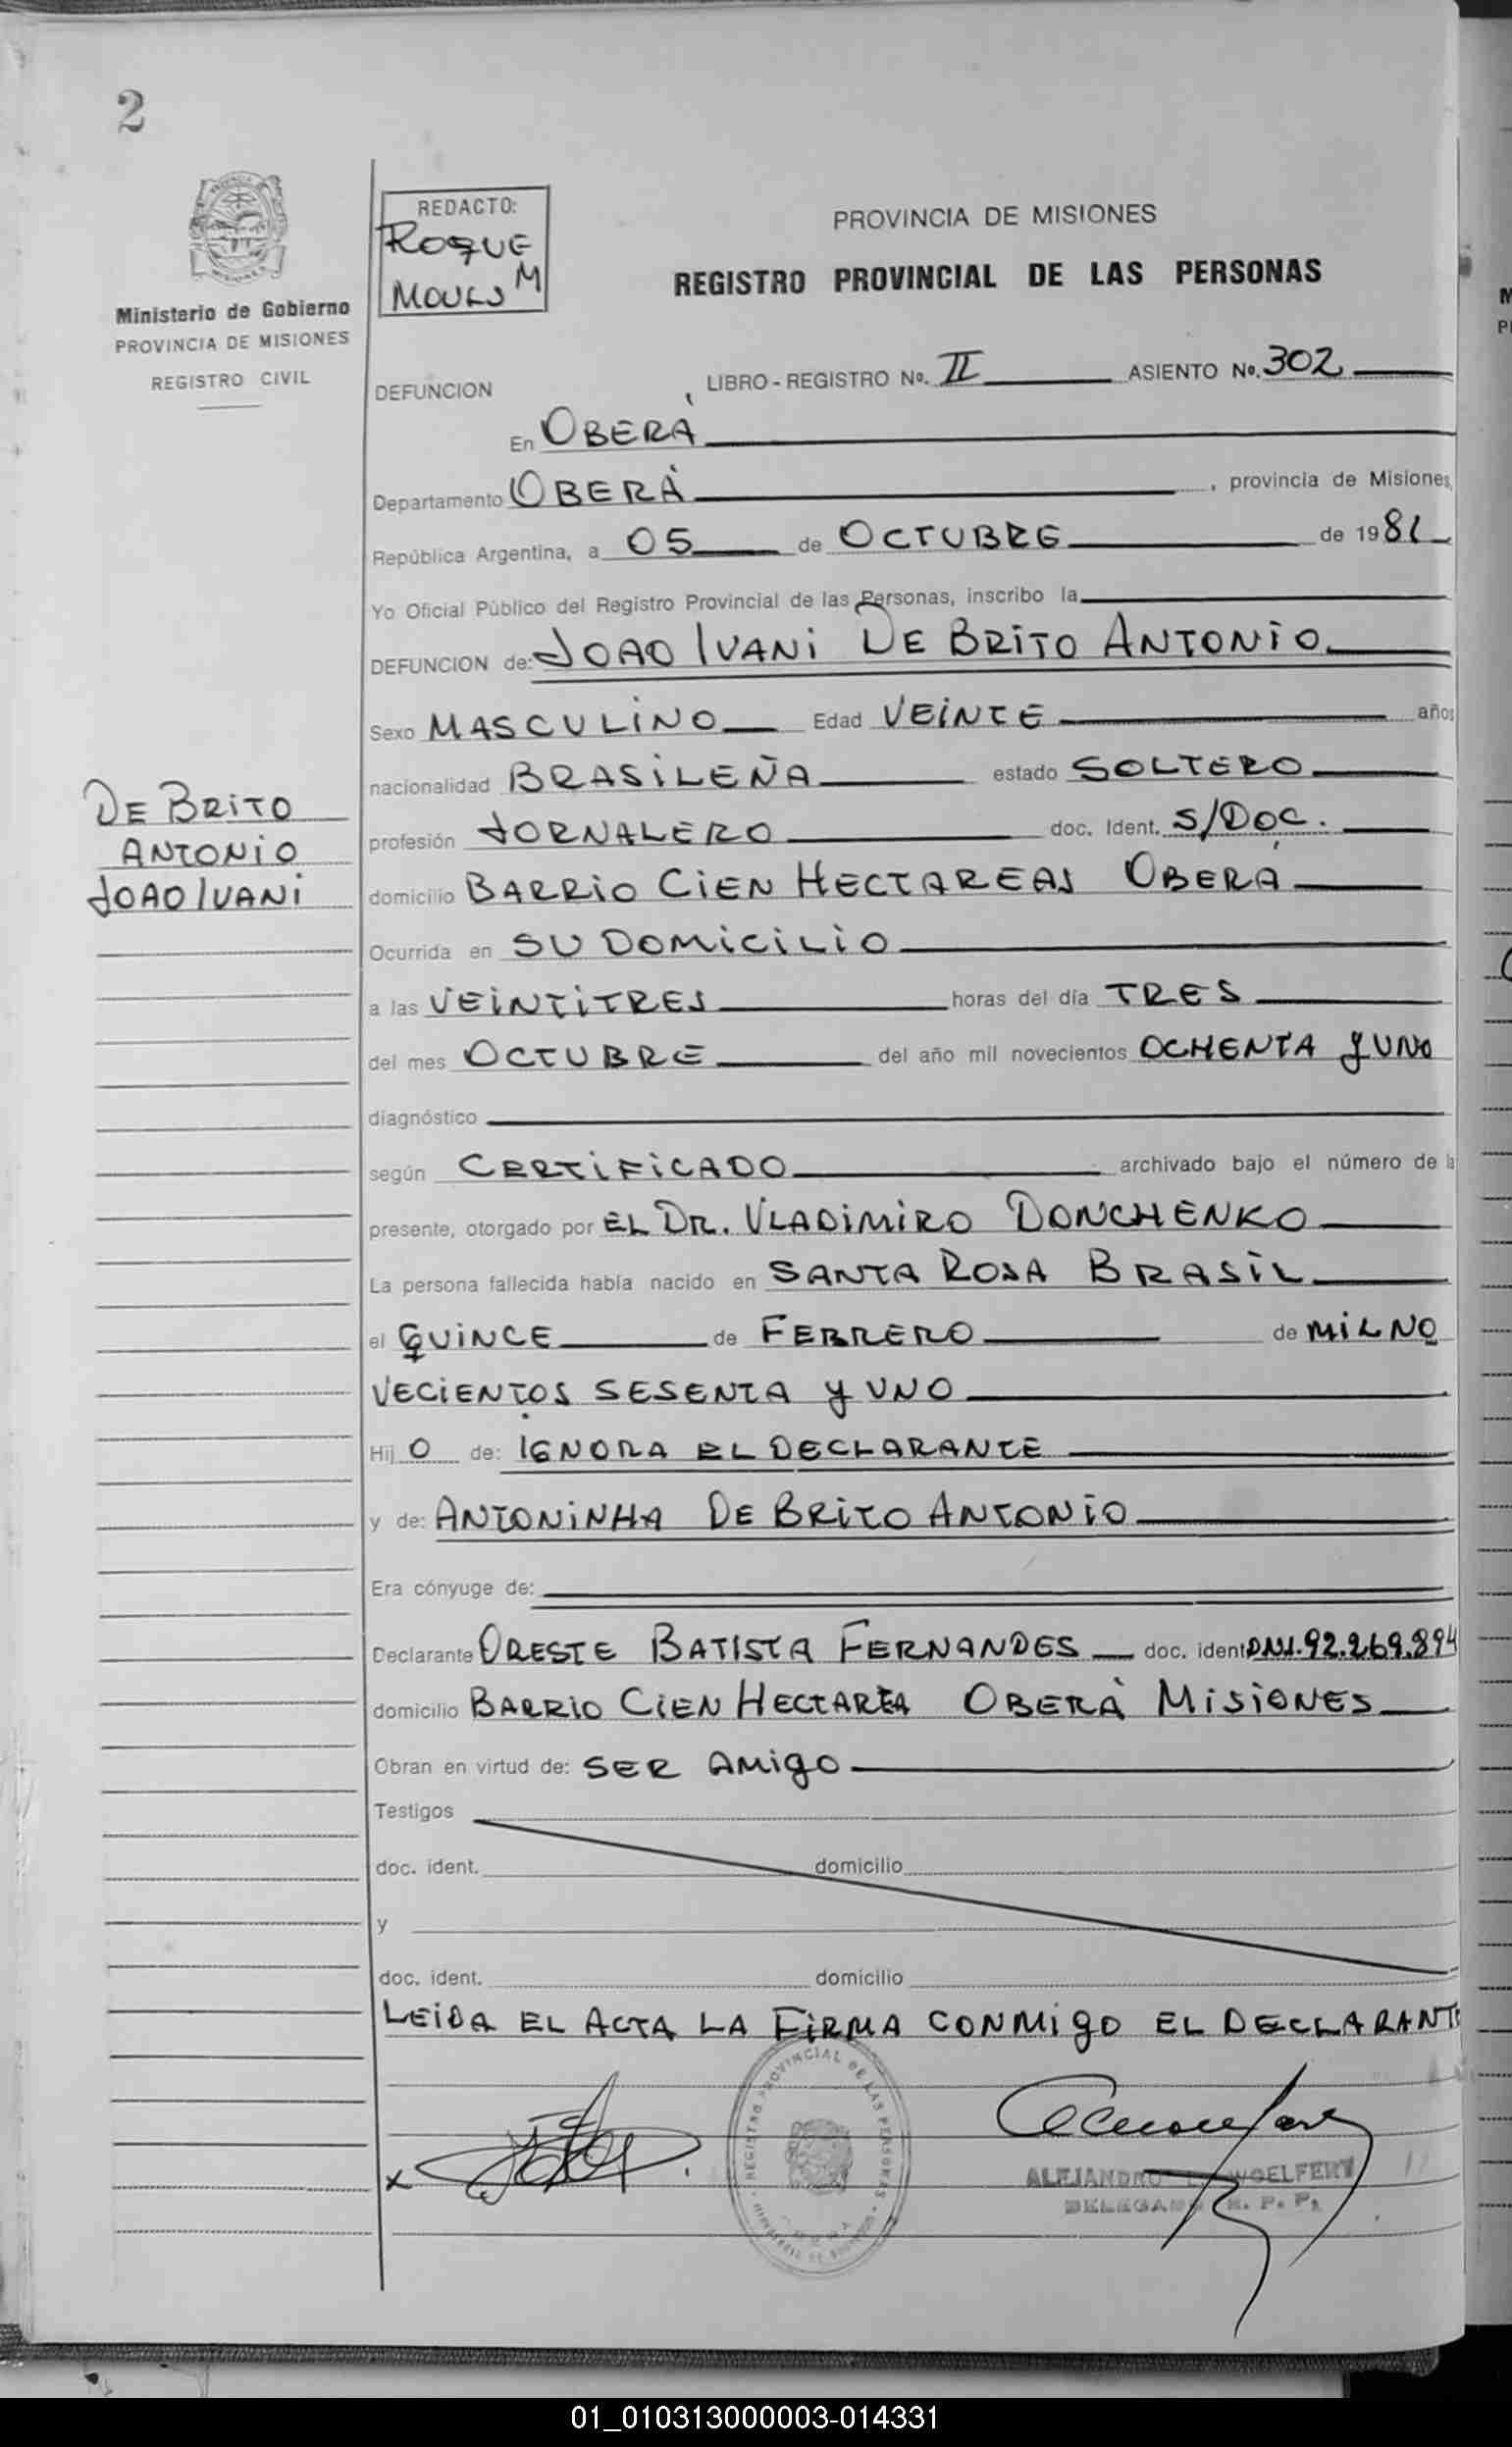 2
REDACTO:
ROQUE
M
Ministerio de Gobierno
PROVINCIA DE MISIONES
REGISTRO CIVIL
PROVINCIA DE MISIONES
REGISTRO PROVINCIAL DE LAS PERSONAS
DEFUNCION LIBRO - REGISTRO No. II ASIENTO No. 302
En OBERÁ
Departamento OBERÁ, provincia de Misiones,
República Argentina, a 05 de OCTUBRE de 1981
Yo Oficial Público del Registro Provincial de las Personas, inscribo la
DEFUNCION de: JOAO IVANI DE BRITO ANTONIO
Sexo MASCULINO Edad VEINTE años
nacionalidad BRASILEÑA estado SOLTERO
DE BRITO
ANTONIO
JOAO IVANI
profesión JORNALERO doc. Ident. S/DOC.
domicilio BARRIO CIEN HECTAREAS OBERÁ
Ocurrida en SU DOMICILIO
a las VEINTITRES horas del día TRES
del mes OCTUBRE del año mil novecientos OCHENTA Y UNO
diagnóstico
según CERTIFICADO archivado bajo el número de la
presente, otorgado por EL DR. VLADIMIRO DONCHENKO
La persona fallecida había nacido en SANTA ROSA BRASIL
el QUINCE de FEBRERO de MIL NO
VECIENTOS SESENTA Y UNO
Hij O de: IGNORA EL DECLARANTE
y de: ANTONINHA DE BRITO ANTONIO
Era cónyuge de:
Declarante ORESTE BATISTA FERNANDES doc. ident. DNI. 92.269.894
domicilio BARRIO CIEN HECTAREA OBERÁ MISIONES
Obran en virtud de: SER AMIGO
Testigos
doc. ident. domicilio
y
doc. ident. domicilio
LEIDA EL ACTA LA FIRMA CONMIGO EL DECLARANTE
x
REGISTRO PROVINCIAL DE LAS PERSONAS
ALEJANDRO WOELFERT
R. P. P.
01_010313000003-014331